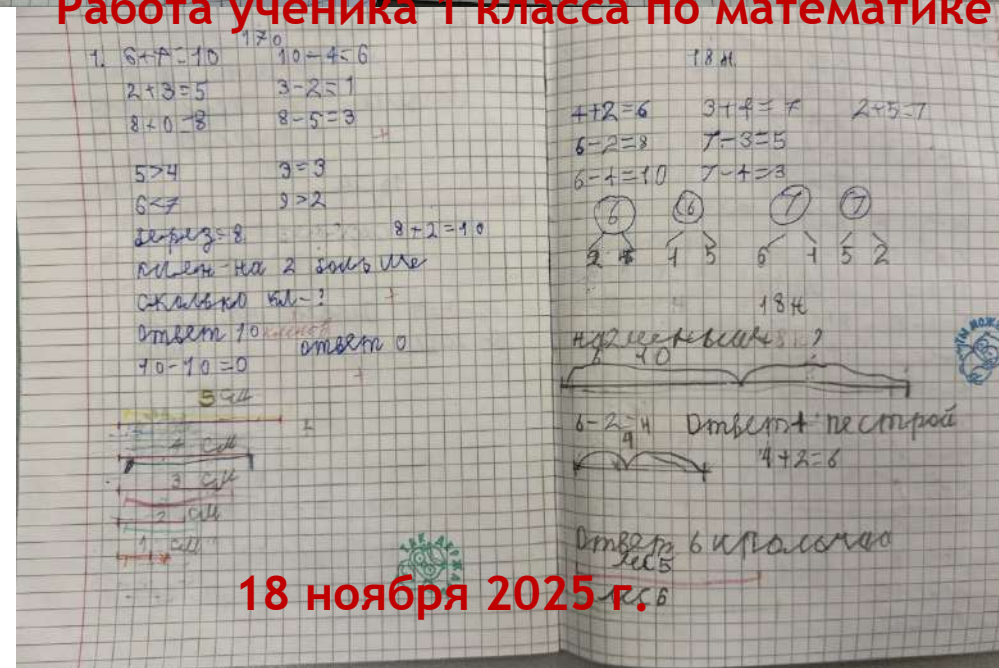 Работа ученика 1 класса по математике
170
1. 6+4=10 10-4=6
2+3=5 3-2=1
8+0=8 8-5=3
5>4 3=3
6<7 9>2
берёз-8 8+2=10
клен-на 2 больше
сколько кл-?
ответ 10 кленов
ответ 0
10-10=0
5 см
4 см
3 см
2 см
1 см
ТАК ДЕРЖА
18 н.
4+2=6 3+4=7 2+5=7
6-2=8 7-3=5
6-4=10 7-4=3
6 6 7 7
2 4 1 5 6 1 5 2
18 н
на 2 меньше ?
6 10
6-2=4 Ответ 4 пестрой
4
4+2=6
Ответ 6
18 ноября 2025 г.